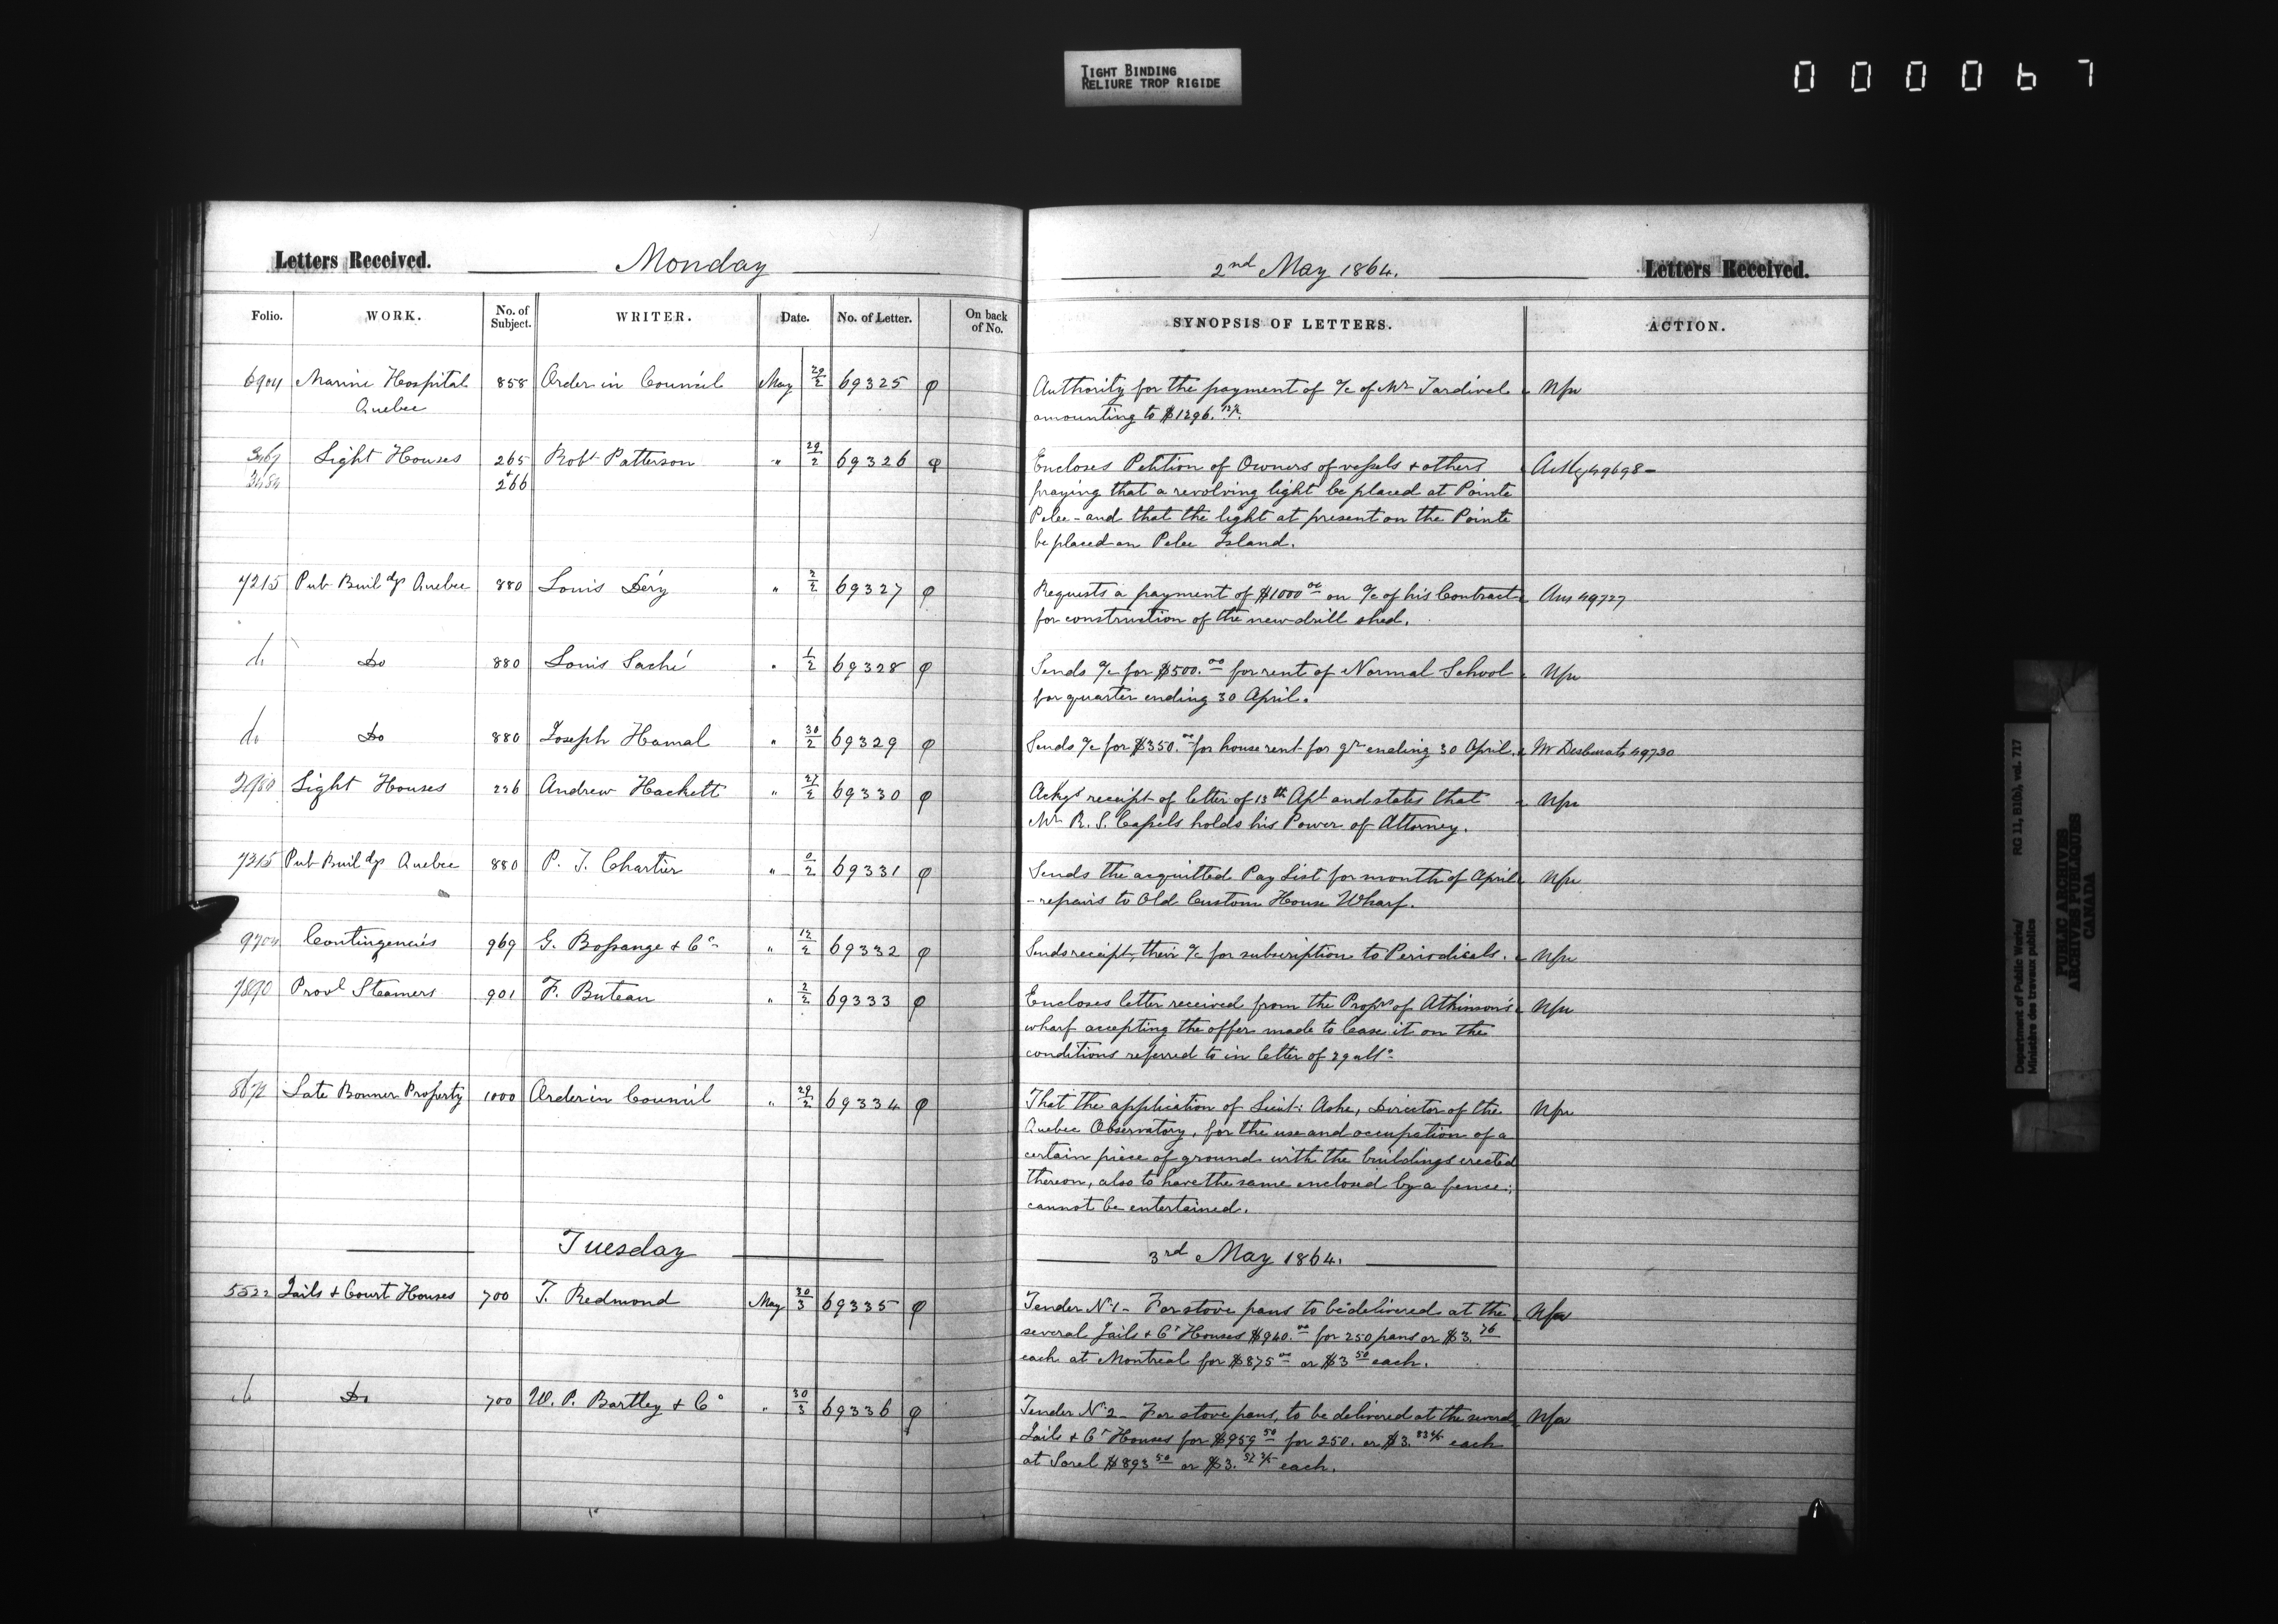 TIGHT BINDING
RELIURE TROP RIGIDE
0 0 0 0 6 7
Letters Received. Monday
Folio. WORK. No. of Subject. WRITER. Date. No. of Letter. On back of No.
6904 Marine Hospital 858 Order in Council May 29/2 69325
Quebec
Light Houses 265 Robt Patterson " 29/2 69326
+
266
7215 Pub Buildgs Quebec 880 Louis Dery " 2/2 69327
do Do 880 Louis Laché " 1/2 69328
do Do 880 Joseph Hamal " 30/2 69329
Light Houses 226 Andrew Hackett " 27/2 69330
7315 Pub Buildgs Quebec 880 P. J. Chartier " 0/2 69331
9704 Contingencies 969 G. Bossange & Co " 12/2 69332
7890 Provl Steamers 901 F. Buteau " 2/2 69333
8672 Late Bonner Property 1000 Order in Council " 29/2 69334
Tuesday
5522 Jails & Court Houses 700 T. Redmond May 30/3 69335
do Do 700 W. P. Bartley & Co " 30/3 69336
2nd May 1864. Letters Received.
SYNOPSIS OF LETTERS. ACTION.
Authority for the payment of a/c of Mr Tardivel Npr
amounting to $1296.
Encloses Petition of Owners of vessels & others 49698 -
praying that a revolving light be placed at Pointe
Pelee - and that the light at present on the Pointe
be placed on Pelee Island.
Requests a payment of $1000 00 on a/c of his Contract Ans 49727
for construction of the new drill shed.
Sends a/c for $500. 00 for rent of Normal School Npr
for quarter ending 30 April.
Sends a/c for $350. 00 for house rent for qr ending 30 April. Mr Desbarats 49730
Ackgs receipt of letter of 13th Apl and states that Npr
Mr R. S. Cassels holds his Power of Attorney.
Sends the acquitted Pay List for month of April Npr
- repairs to Old Custom House Wharf.
Sends receipt, their a/c for subscription to Periodicals. Npr
Encloses letter received from the Proprs of Atkinson's Npr
wharf accepting the offer made to lease it on the
conditions referred to in letter of 29 ulto
That the application of Lieut: Ashe, Director of the Npr
Quebec Observatory, for the use and occupation of a
certain piece of ground with the buildings erected
thereon, also to have the same enclosed by a fence;
cannot be entertained.
3rd May 1864.
Tender No 1 - For stove pans to be delivered at the Npr
several Jails & Ct Houses $940. 00 for 250 pans or $3. 76
each at Montreal for $875 00 or $3 50 each.
Tender No 2 - For stove pans, to be delivered at the several Npr
Jails & Ct Houses for $959 50 for 250. or $3. 83 4/5 each
at Sorel $893 50 or $3. 57 2/5 each.
Department of Public Works/ RG 11, B1(b), vol. 717
Ministère des travaux publics
PUBLIC ARCHIVES
ARCHIVES PUBLIQUES
CANADA